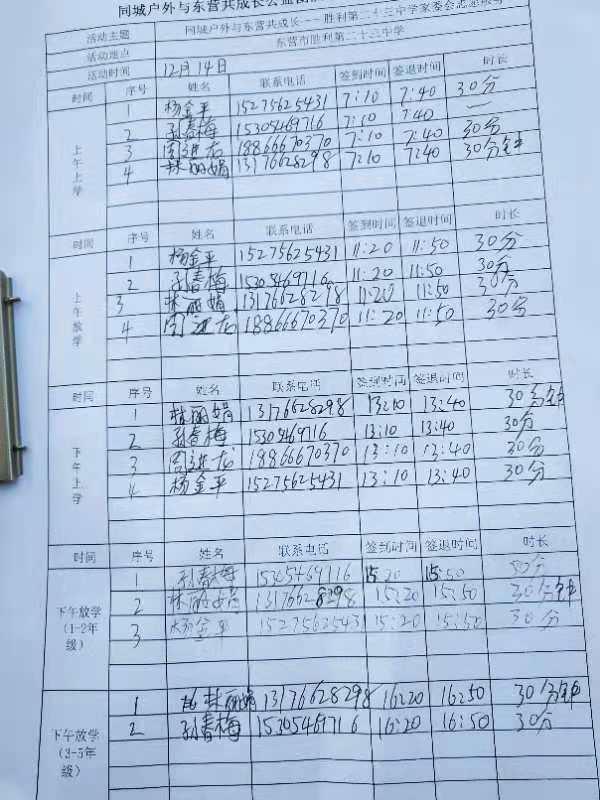 同城户外与东营共成长公益
活动主题 同城户外与东营共成长---胜利第二十三中学家委会志愿服务
活动地点 东营市胜利第二十三中学
活动时间 12月14日
时间 序号 姓名 联系电话 签到时间 签退时间 时长
上午上学
1 杨金平 15275625431 7:10 7:40 30分
2 孙春梅 15305469716 7:10 7:40 一
3 周进龙 18866670370 7:10 7:40 30分
4 林丽娟 13176628298 7:10 7:40 30分钟
时间 序号 姓名 联系电话 签到时间 签退时间 时长
上午放学
1 杨金平 15275625431 11:20 11:50 30分
2 孙春梅 15305469716 11:20 11:50 30分
3 林丽娟 13176628298 11:20 11:50 30分
4 周进龙 18866670370 11:20 11:50 30分
时间 序号 姓名 联系电话 签到时间 签退时间 时长
下午上学
1 林丽娟 13176628298 13:10 13:40 30分钟
2 孙春梅 15305469716 13:10 13:40 30分
3 周进龙 18866670370 13:10 13:40 30分
4 杨金平 15275625431 13:10 13:40 30分
时间 序号 姓名 联系电话 签到时间 签退时间 时长
下午放学(1-2年级)
1 孙春梅 15305469716 15:20 15:50 30分
2 林丽娟 13176628298 15:20 15:50 30分钟
3 杨金平 15275625431 15:20 15:50 30分
下午放学(3-5年级)
1 林丽娟 13176628298 16:20 16:50 30分钟
2 孙春梅 15305469716 16:20 16:50 30分